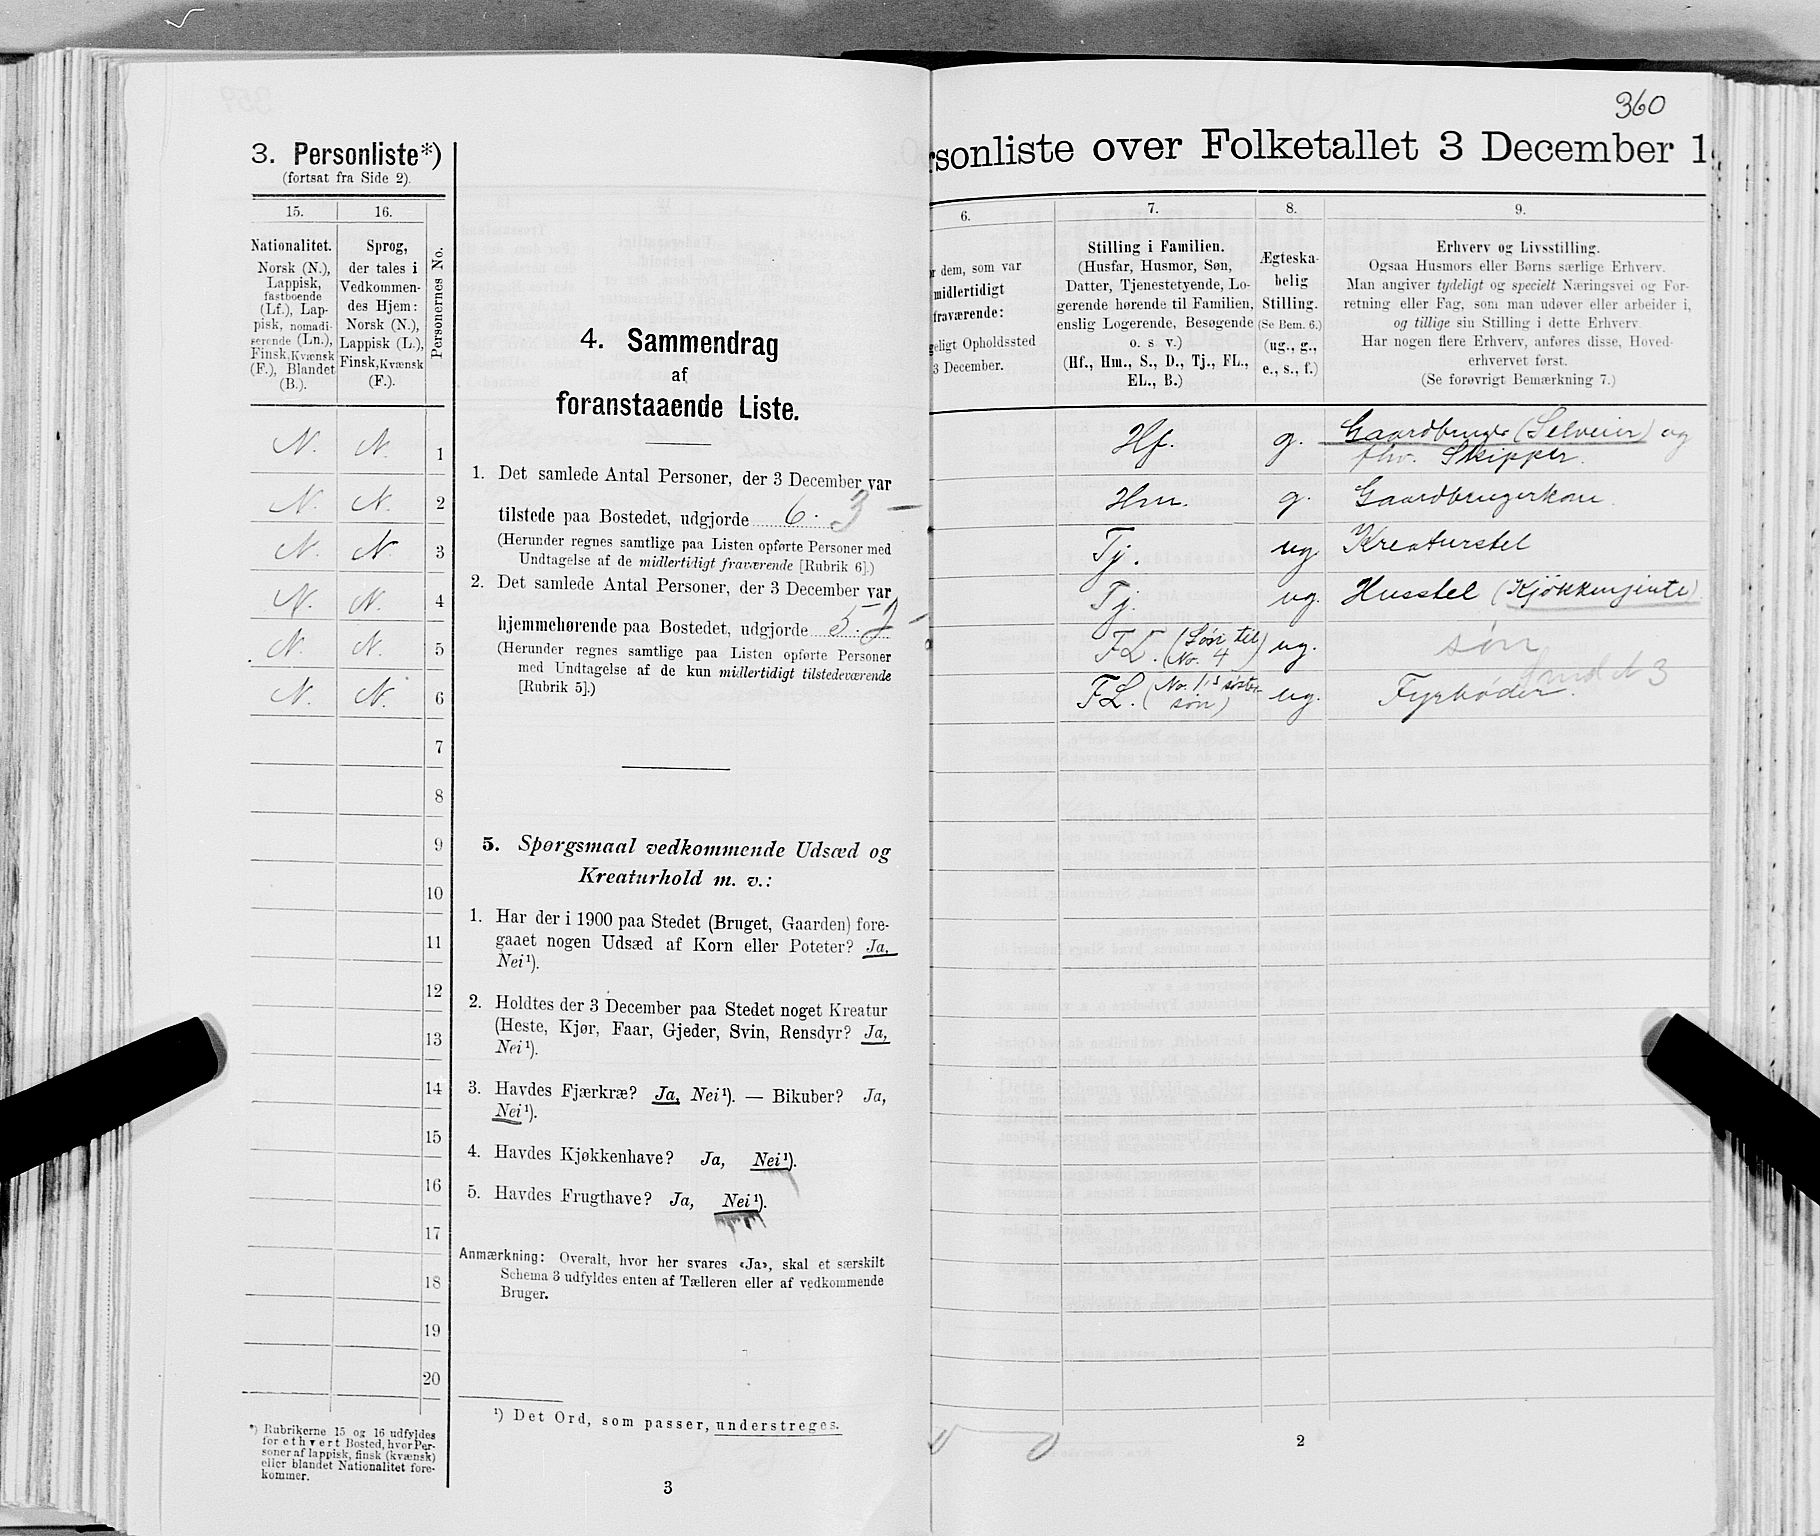 3. Personliste*)
(fortsat fra Side 2).
15.
16.
Nationalitet.
Norsk (N.),
Lappisk,
fastboende
(Lf.), Lap-
pisk, nomadi-
serende (Ln.),
Finsk, Kvænsk
(F.), Blandet
(B.).
Sprog,
der tales i
Vedkommen-
des Hjem:
Norsk (N.),
Lappisk (L.),
Finsk, Kvænsk
(F.).
Personernes No.
N. N. 1
N. N. 2
N. N 3
N. N. 4
N. N. 5
N. N. 6
7
8
9
10
11
12
13
14
15
16
17
18
19
20
*) Rubrikerne 15 og 16 udfyldes
for ethvert Bosted, hvor Per-
soner af lappisk, finsk (kvænsk)
eller blandet Nationalitet fore-
kommer.
4. Sammendrag
af
foranstaaende Liste.
1. Det samlede Antal Personer, der 3 December var
tilstede paa Bostedet, udgjorde 6. 3 –
(Herunder regnes samtlige paa Listen opførte Personer med
Undtagelse af de midlertidigt fraværende [Rubrik 6].)
2. Det samlede Antal Personer, der 3 December var
hjemmehørende paa Bostedet, udgjorde 5. 2 -
(Herunder regnes samtlige paa Listen opførte Personer
med Undtagelse af de kun midlertidigt tilstedeværende
[Rubrik 5].)
5. Spørgsmaal vedkommende Udsæd og
Kreaturhold m. v.:
1. Har der i 1900 paa Stedet (Bruget, Gaarden) fore-
gaaet nogen Udsæd af Korn eller Poteter? Ja,
Nei¹).
2. Holdtes der 3 December paa Stedet noget Kreatur
(Heste, Kjør, Faar, Gjeder, Svin, Rensdyr? Ja,
Nei¹).
3. Havdes Fjærkræ? Ja, Nei¹). — Bikuber? Ja,
Nei¹).
4. Havdes Kjøkkenhave? Ja, Nei¹).
5. Havdes Frugthave? Ja, Nei¹).
Anmærkning: Overalt, hvor her svares «Ja», skal et særskilt
Schema 3 udfyldes enten af Tælleren eller af vedkommende
Bruger.
¹) Det Ord, som passer, understreges.
3
360
rsonliste over Folketallet 3 December 1
6.
r dem, som var
midlertidigt
fraværende:
geligt Opholdssted
3 December.
7.
Stilling i Familien.
(Husfar, Husmor, Søn,
Datter, Tjenestetyende, Lo-
gerende hørende til Familien,
enslig Logerende, Besøgende
o. s v.)
(Hf., Hm., S., D., Tj., FL.,
EL., B.)
8.
Ægteska-
belig
Stilling.
(Se Bem. 6.)
(ug., g.,
e., s., f.)
9.
Erhverv og Livsstilling.
Ogsaa Husmors eller Børns særlige Erhverv.
Man angiver tydeligt og specielt Næringsvei og For-
retning eller Fag, som man udøver eller arbeider i,
og tillige sin Stilling i dette Erhverv.
Har nogen flere Erhverv, anføres disse, Hoved-
erhvervet først.
(Se forøvrigt Bemærkning 7.)
Hf. g. Gaardbruger (Selveier) og
fhv. Skipper.
Hm. g. Gaardbrugerkone.
Tj. ug. Kreaturstel
Tj. ug. Husstel (Kjøkkenjente)
FL. (Søn til No. 4) ug. søn
FL. (No. 1's søster søn) ug. Fyrbøder.
2